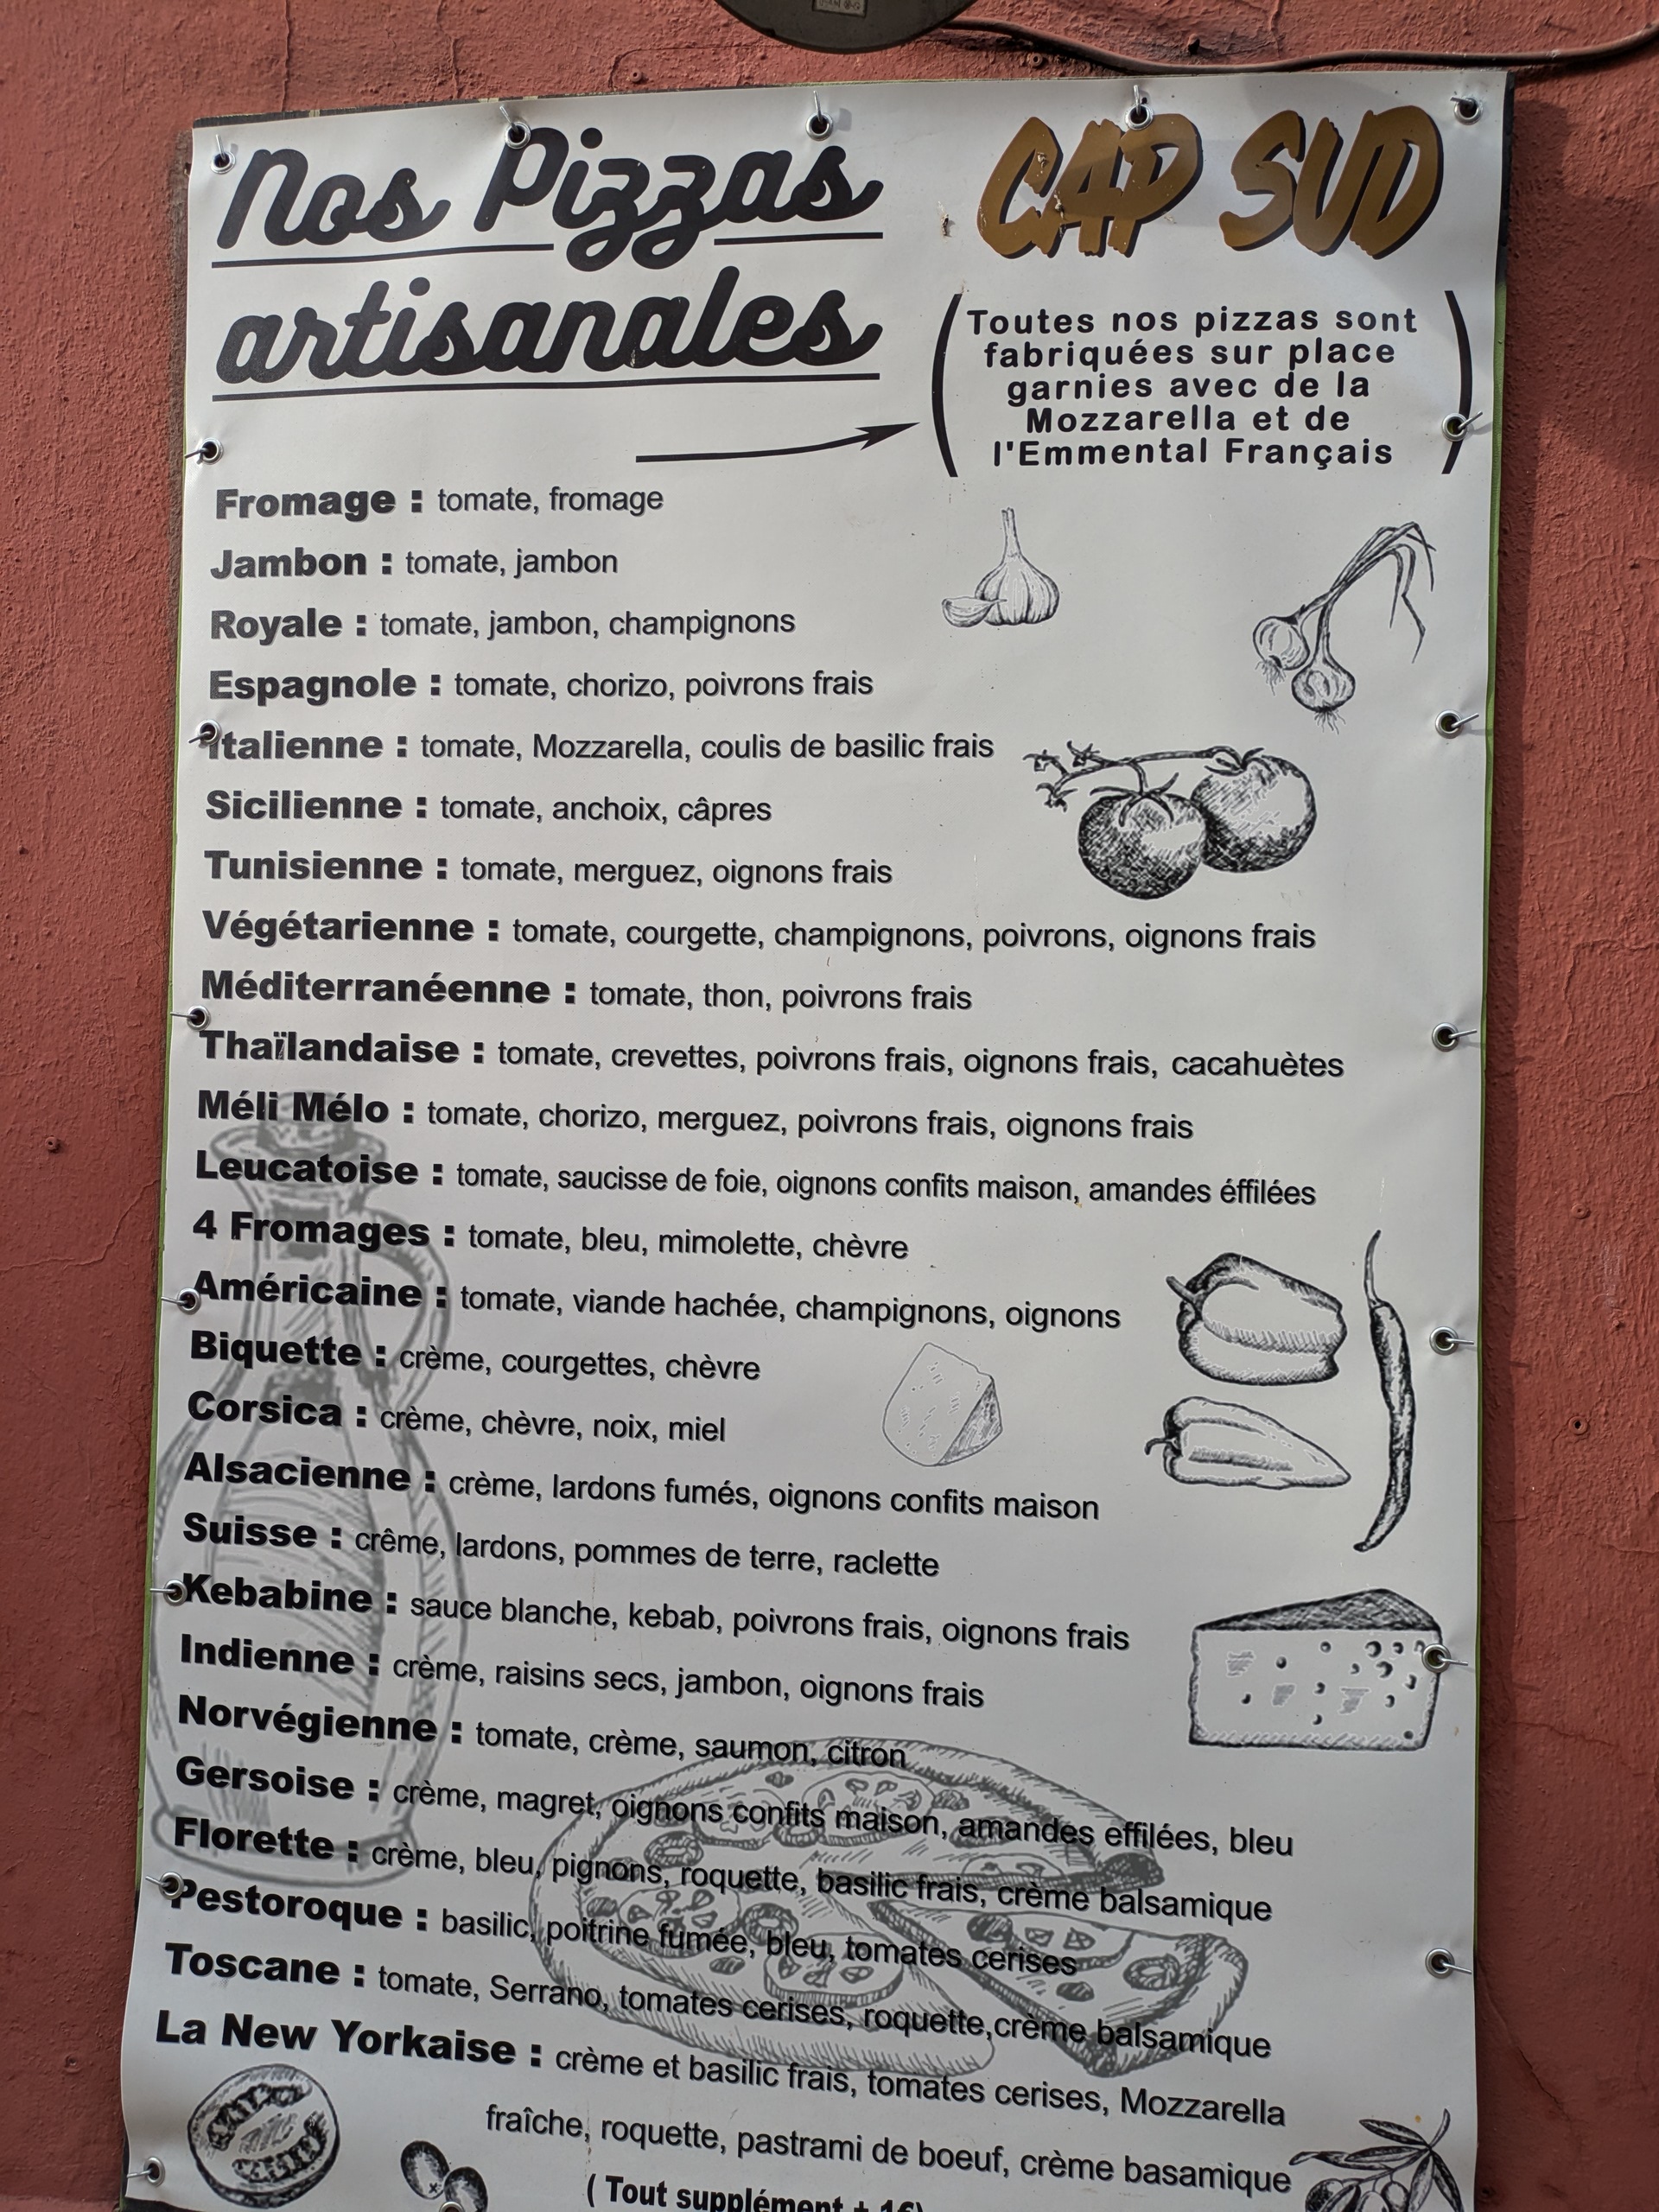 Nos Pizzas
artisanales
CAP SUD
(Toutes nos pizzas sont
fabriquées sur place
garnies avec de la
Mozzarella et de
l'Emmental Français)
Fromage : tomate, fromage
Jambon : tomate, jambon
Royale : tomate, jambon, champignons
Espagnole : tomate, chorizo, poivrons frais
Italienne : tomate, Mozzarella, coulis de basilic frais
Sicilienne : tomate, anchoix, câpres
Tunisienne : tomate, merguez, oignons frais
Végétarienne : tomate, courgette, champignons, poivrons, oignons frais
Méditerranéenne : tomate, thon, poivrons frais
Thaïlandaise : tomate, crevettes, poivrons frais, oignons frais, cacahuètes
Méli Mélo : tomate, chorizo, merguez, poivrons frais, oignons frais
Leucatoise : tomate, saucisse de foie, oignons confits maison, amandes éffilées
4 Fromages : tomate, bleu, mimolette, chèvre
Américaine : tomate, viande hachée, champignons, oignons
Biquette : crème, courgettes, chèvre
Corsica : crème, chèvre, noix, miel
Alsacienne : crème, lardons fumés, oignons confits maison
Suisse : crême, lardons, pommes de terre, raclette
Kebabine : sauce blanche, kebab, poivrons frais, oignons frais
Indienne : crème, raisins secs, jambon, oignons frais
Norvégienne : tomate, crème, saumon, citron
Gersoise : crème, magret, oignons confits maison, amandes effilées, bleu
Florette : crème, bleu, pignons, roquette, basilic frais, crème balsamique
Pestoroque : basilic, poitrine fumée, bleu, tomates cerises
Toscane : tomate, Serrano, tomates cerises, roquette,crème balsamique
La New Yorkaise : crème et basilic frais, tomates cerises, Mozzarella
fraîche, roquette, pastrami de boeuf, crème basamique
( Tout supplément + 1€)